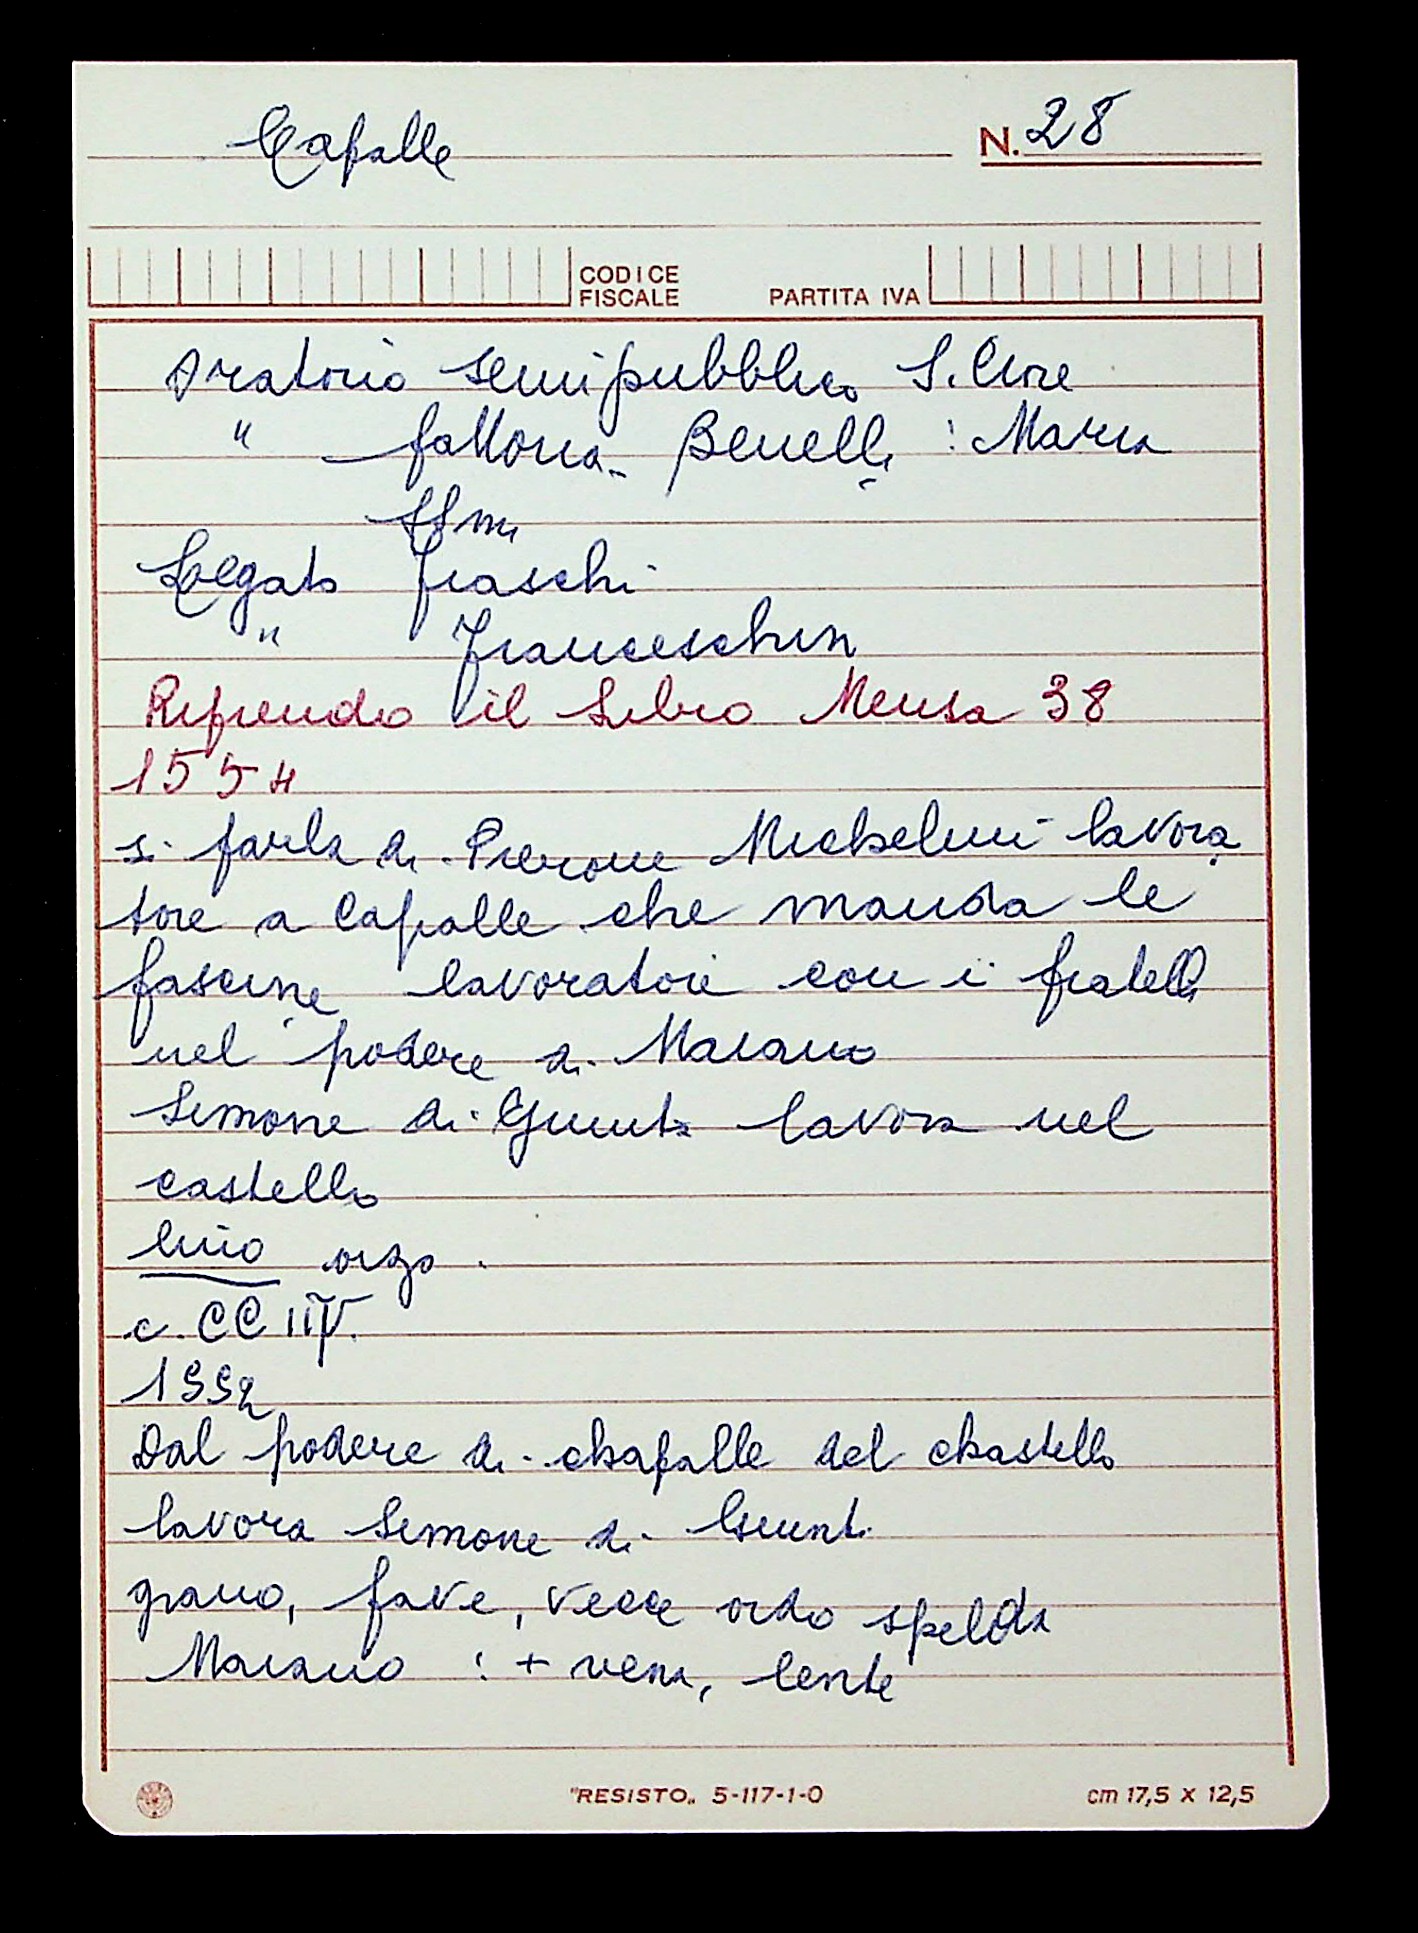 Capalle
N. 28
CODICE
FISCALE
PARTITA IVA
Oratorio semipubblico S. Cuore
" fattoria Benelli : Maria
SSma
Legato Fraschi
" Franceschini
Riprendo il Libro Mensa 38
1554
si parla di Pierone Michelini lavora
tore a Capalle che manda le
fascine lavoratore con i fratelli
nel podere di Maiano
Simone di Giunta lavora nel
castello
lino orzo.
c. CCIIV.
1552
Dal podere di chapalle del chastello
lavora Simone di Giunti
grano, fave, vecce ordo spelda
Maiano : + vena, lente
"RESISTO„ 5-117-1-0
cm 17,5 x 12,5